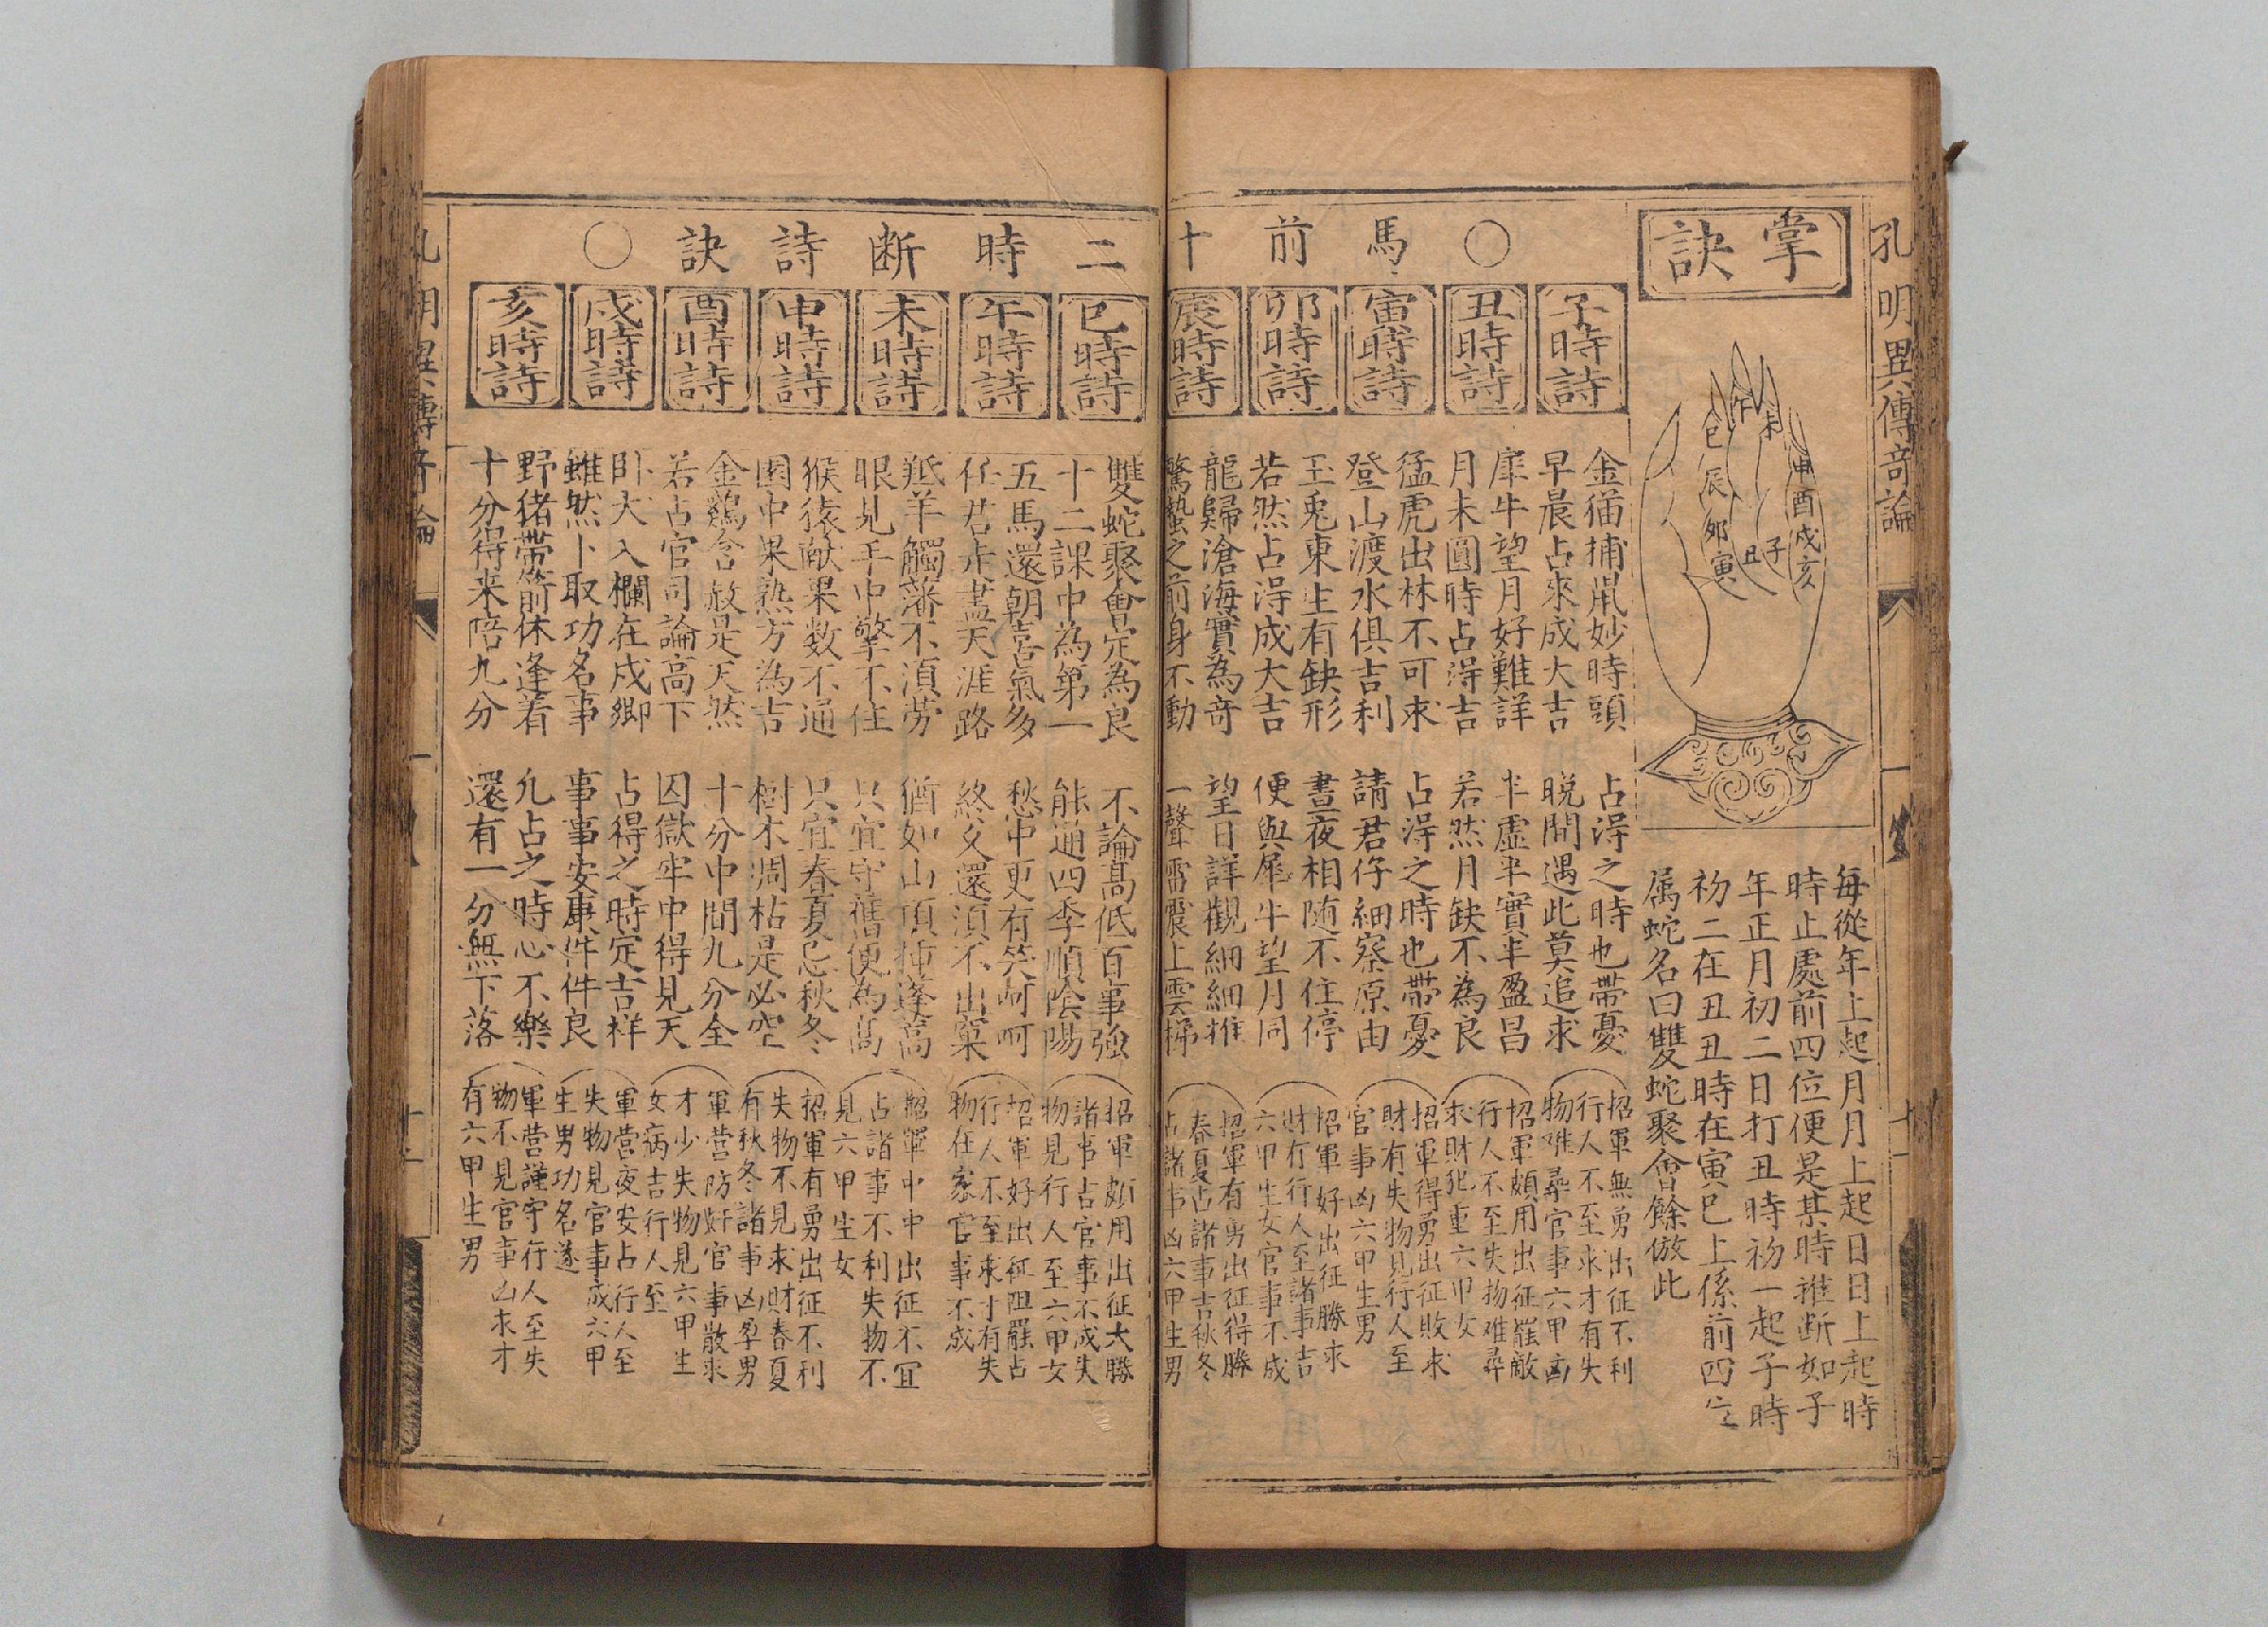 孔明異傳奇論
掌訣
午
未
巳
申
辰
酉
卯
戌
寅
丑
子
亥
每從年上起月月上起日日上起時
時止處前四位便是某時推断如子
年正月初二日打丑時初一起子時
初二在丑丑時在寅巳上係前四位
属蛇名曰雙蛇聚會餘倣此
○馬前十二時断詩訣○
子時詩
金猫捕鼠妙時頭 占淂之時也帶憂
早晨占來成大吉 晚間遇此莫追求
招軍無勇出征不利
行人不至求才有失
物难尋官事六甲凶
丑時詩
犀牛望月好難詳 半虚半實半盈昌
月未圓時占淂吉 若然月缺不為良
招軍頗用出征罷敵
行人不至失物难尋
求財犯重六甲女
寅時詩
猛虎出林不可求 占淂之時也帶憂
登山渡水俱吉利 請君仔細察原由
招軍得勇出征敗求
財有失物見行人至
官事凶六甲生男
卯時詩
玉兎東生有缺形 晝夜相随不住停
若然占淂成大吉 便與犀牛望月同
招軍好出征勝求
財有行人至諸事吉
六甲生女官事不成
辰時詩
龍歸滄海實為奇 望日詳觀細細推
驚蟄之前身不動 一聲雷震上雲梯
招軍有勇出征得勝
春夏占諸事吉秋冬
占諸事凶六甲生男
巳時詩
雙蛇聚會定為良 不論髙低百事強
十二課中為第一 能通四季順陰陽
招軍頗用出征大勝
諸事占官事不成失
物見行人至六甲女
午時詩
五馬還朝喜氣多 愁中更有笑呵呵
任君走盡天涯路 終久還須不出窠
招軍好出征阻罷占
行人不至求才有失
物在家官事不成
未時詩
羝羊觸藩不湏劳 猶如山頂挿蓬蒿
眼見手中擎不住 只宜守舊便為髙
招軍中中出征不宜
占諸事不利失物不
見六甲生女
申時詩
猴猿献果数不通 只宜春夏忌秋冬
園中果熟方為吉 樹木凋枯是必空
招軍有勇出征不利
失物不見求財春夏
有秋冬諸事凶孕男
酉時詩
金鷄含赦是天然 十分中間九分全
若占官司論高下 囚獄牢中得見天
軍营防奸官事散求
才少失物見六甲生
女病吉行人至
戌時詩
卧犬入欄在戌鄉 占得之時定吉祥
雖然卜取功名事 事事安康件件良
軍营夜安占行人至
失物見官事成六甲
生男功名遂
亥時詩
野猪帶箭休逢着 凡占之時心不樂
十分得来陪九分 還有一分無下落
軍营謹守行人至失
物不見官事凶求才
有六甲生男